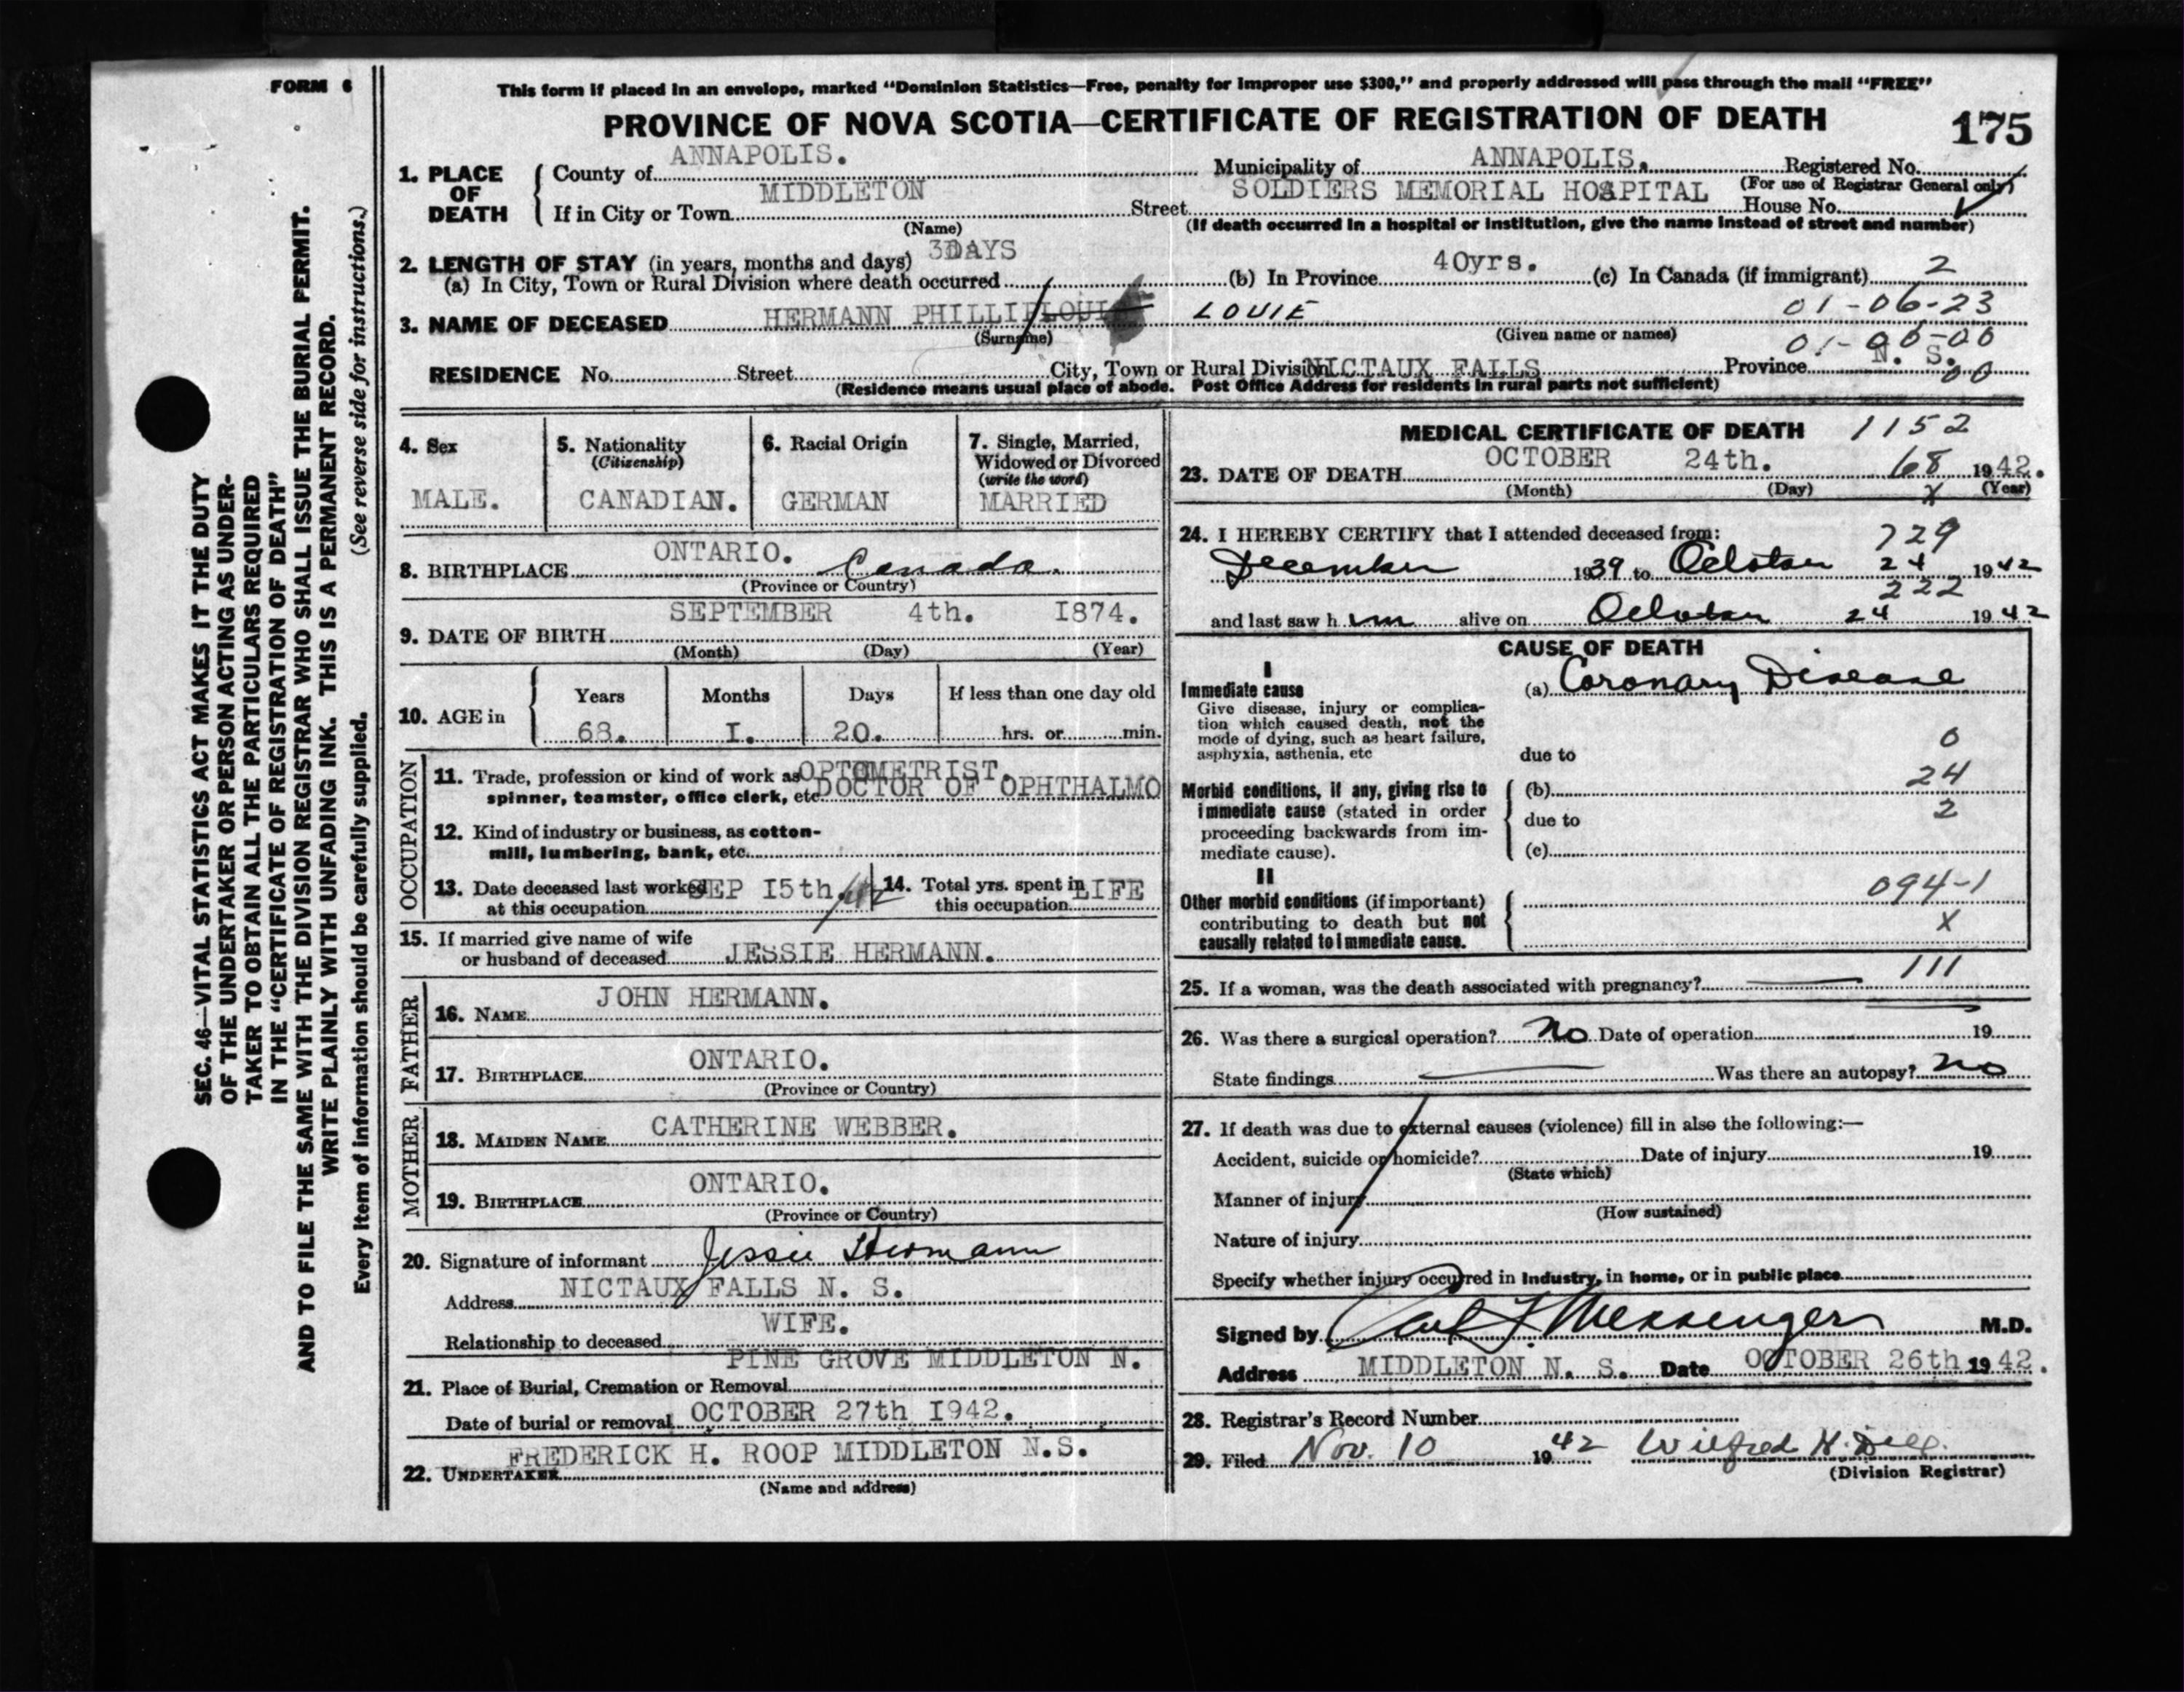 FORM 6
This form if placed in an envelope, marked "Dominion Statistics—Free, penalty for improper use $300," and properly addressed will pass through the mail "FREE"
PROVINCE OF NOVA SCOTIA—CERTIFICATE OF REGISTRATION OF DEATH 175
1. PLACE OF DEATH
County of ANNAPOLIS. Municipality of ANNAPOLIS. Registered No.
(For use of Registrar General only)
If in City or Town MIDDLETON Street SOLDIERS MEMORIAL HOSPITAL House No.
(Name) (If death occurred in a hospital or institution, give the name instead of street and number)
2. LENGTH OF STAY (in years, months and days) 3DAYS
(a) In City, Town or Rural Division where death occurred (b) In Province 40yrs. (c) In Canada (if immigrant) 2
01-06-23
3. NAME OF DECEASED HERMANN PHILLIP LOUIE
(Surname) (Given name or names)
01-00-00
RESIDENCE No. Street City, Town or Rural Division NICTAUX FALLS Province N. S.
00
(Residence means usual place of abode. Post Office Address for residents in rural parts not sufficient)
4. Sex
MALE.
5. Nationality
(Citizenship)
CANADIAN.
6. Racial Origin
GERMAN
7. Single, Married,
Widowed or Divorced
(write the word)
MARRIED
8. BIRTHPLACE ONTARIO. Canada.
(Province or Country)
9. DATE OF BIRTH SEPTEMBER 4th. I874.
(Month) (Day) (Year)
10. AGE in Years Months Days If less than one day old
68. I. 20. hrs. or min.
OCCUPATION
11. Trade, profession or kind of work as OPTOMETRIST.
spinner, teamster, office clerk, etc. DOCTOR OF OPHTHALMO
12. Kind of industry or business, as cotton-
mill, lumbering, bank, etc.
13. Date deceased last worked SEP I5th /42
at this occupation
14. Total yrs. spent in LIFE
this occupation
15. If married give name of wife
or husband of deceased JESSIE HERMANN.
FATHER
16. NAME JOHN HERMANN.
17. BIRTHPLACE ONTARIO.
(Province or Country)
MOTHER
18. MAIDEN NAME CATHERINE WEBBER.
19. BIRTHPLACE ONTARIO.
(Province or Country)
20. Signature of informant Jessie Hermann
Address NICTAUX FALLS N. S.
Relationship to deceased WIFE.
21. Place of Burial, Cremation or Removal PINE GROVE MIDDLETON N.
Date of burial or removal OCTOBER 27th I942.
22. UNDERTAKER FREDERICK H. ROOP MIDDLETON N.S.
(Name and address)
MEDICAL CERTIFICATE OF DEATH 1152
23. DATE OF DEATH OCTOBER 24th. 68 1942.
(Month) (Day) x (Year)
24. I HEREBY CERTIFY that I attended deceased from: 729
December 1939 to October 24 1942
222
and last saw h im alive on October 24 1942
CAUSE OF DEATH
I
Immediate cause
Give disease, injury or complica-
tion which caused death, not the
mode of dying, such as heart failure,
asphyxia, asthenia, etc
(a) Coronary Disease
0
due to
24
Morbid conditions, if any, giving rise to
immediate cause (stated in order
proceeding backwards from im-
mediate cause).
(b)
2
due to
(c)
II
Other morbid conditions (if important)
contributing to death but not
causally related to immediate cause.
094-1
X
25. If a woman, was the death associated with pregnancy? 111
26. Was there a surgical operation? No Date of operation 19
State findings Was there an autopsy? No
27. If death was due to external causes (violence) fill in also the following:—
Accident, suicide or homicide? Date of injury 19
(State which)
Manner of injury
(How sustained)
Nature of injury
Specify whether injury occurred in industry, in home, or in public place
Signed by Messenger M.D.
Address MIDDLETON N. S. Date OCTOBER 26th 1942.
28. Registrar's Record Number
29. Filed Nov. 10 1942 Wilfred H.
(Division Registrar)
SEC. 46—VITAL STATISTICS ACT MAKES IT THE DUTY
OF THE UNDERTAKER OR PERSON ACTING AS UNDER-
TAKER TO OBTAIN ALL THE PARTICULARS REQUIRED
IN THE "CERTIFICATE OF REGISTRATION OF DEATH"
AND TO FILE THE SAME WITH THE DIVISION REGISTRAR WHO SHALL ISSUE THE BURIAL PERMIT.
WRITE PLAINLY WITH UNFADING INK. THIS IS A PERMANENT RECORD.
Every item of information should be carefully supplied. (See reverse side for instructions.)